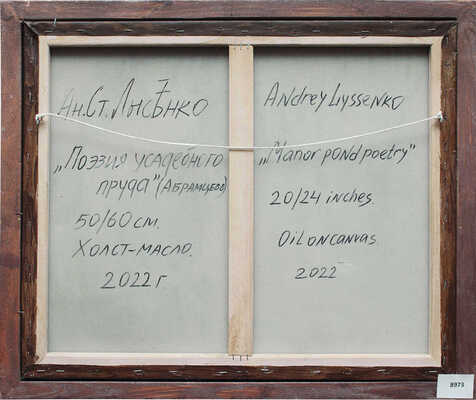 Ан.Ст. Лысѣнко
„Поэзия усадебного
пруда" (Абрамцево)
50/60 см.
Холст-масло.
2022 г
Andrey Lyssenko
„Manor pond poetry"
20/24 inches
Oil on canvas
2022
8973